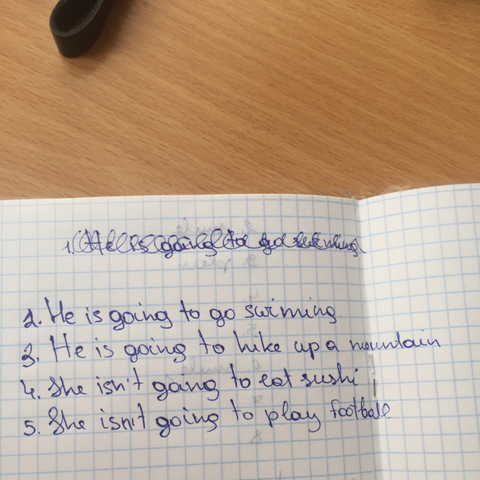 2. He is going to go swiming
3. He is going to hike up a mountain
4. She isn't going to eat sushi
5. She isn't going to play football